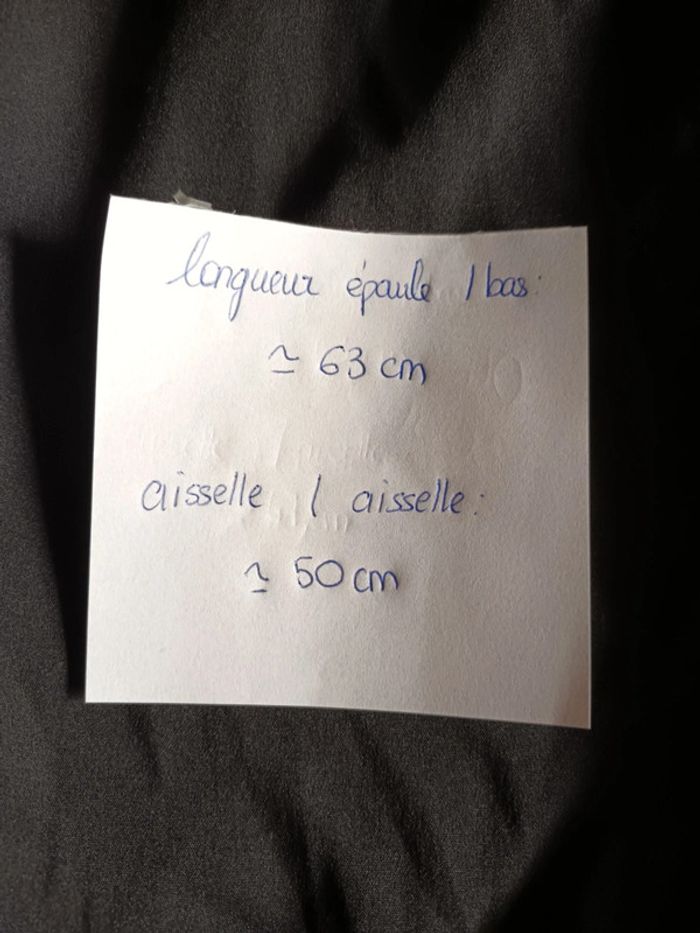 longueur épaule / bas :
≃ 63 cm
aisselle / aisselle :
≃ 50 cm